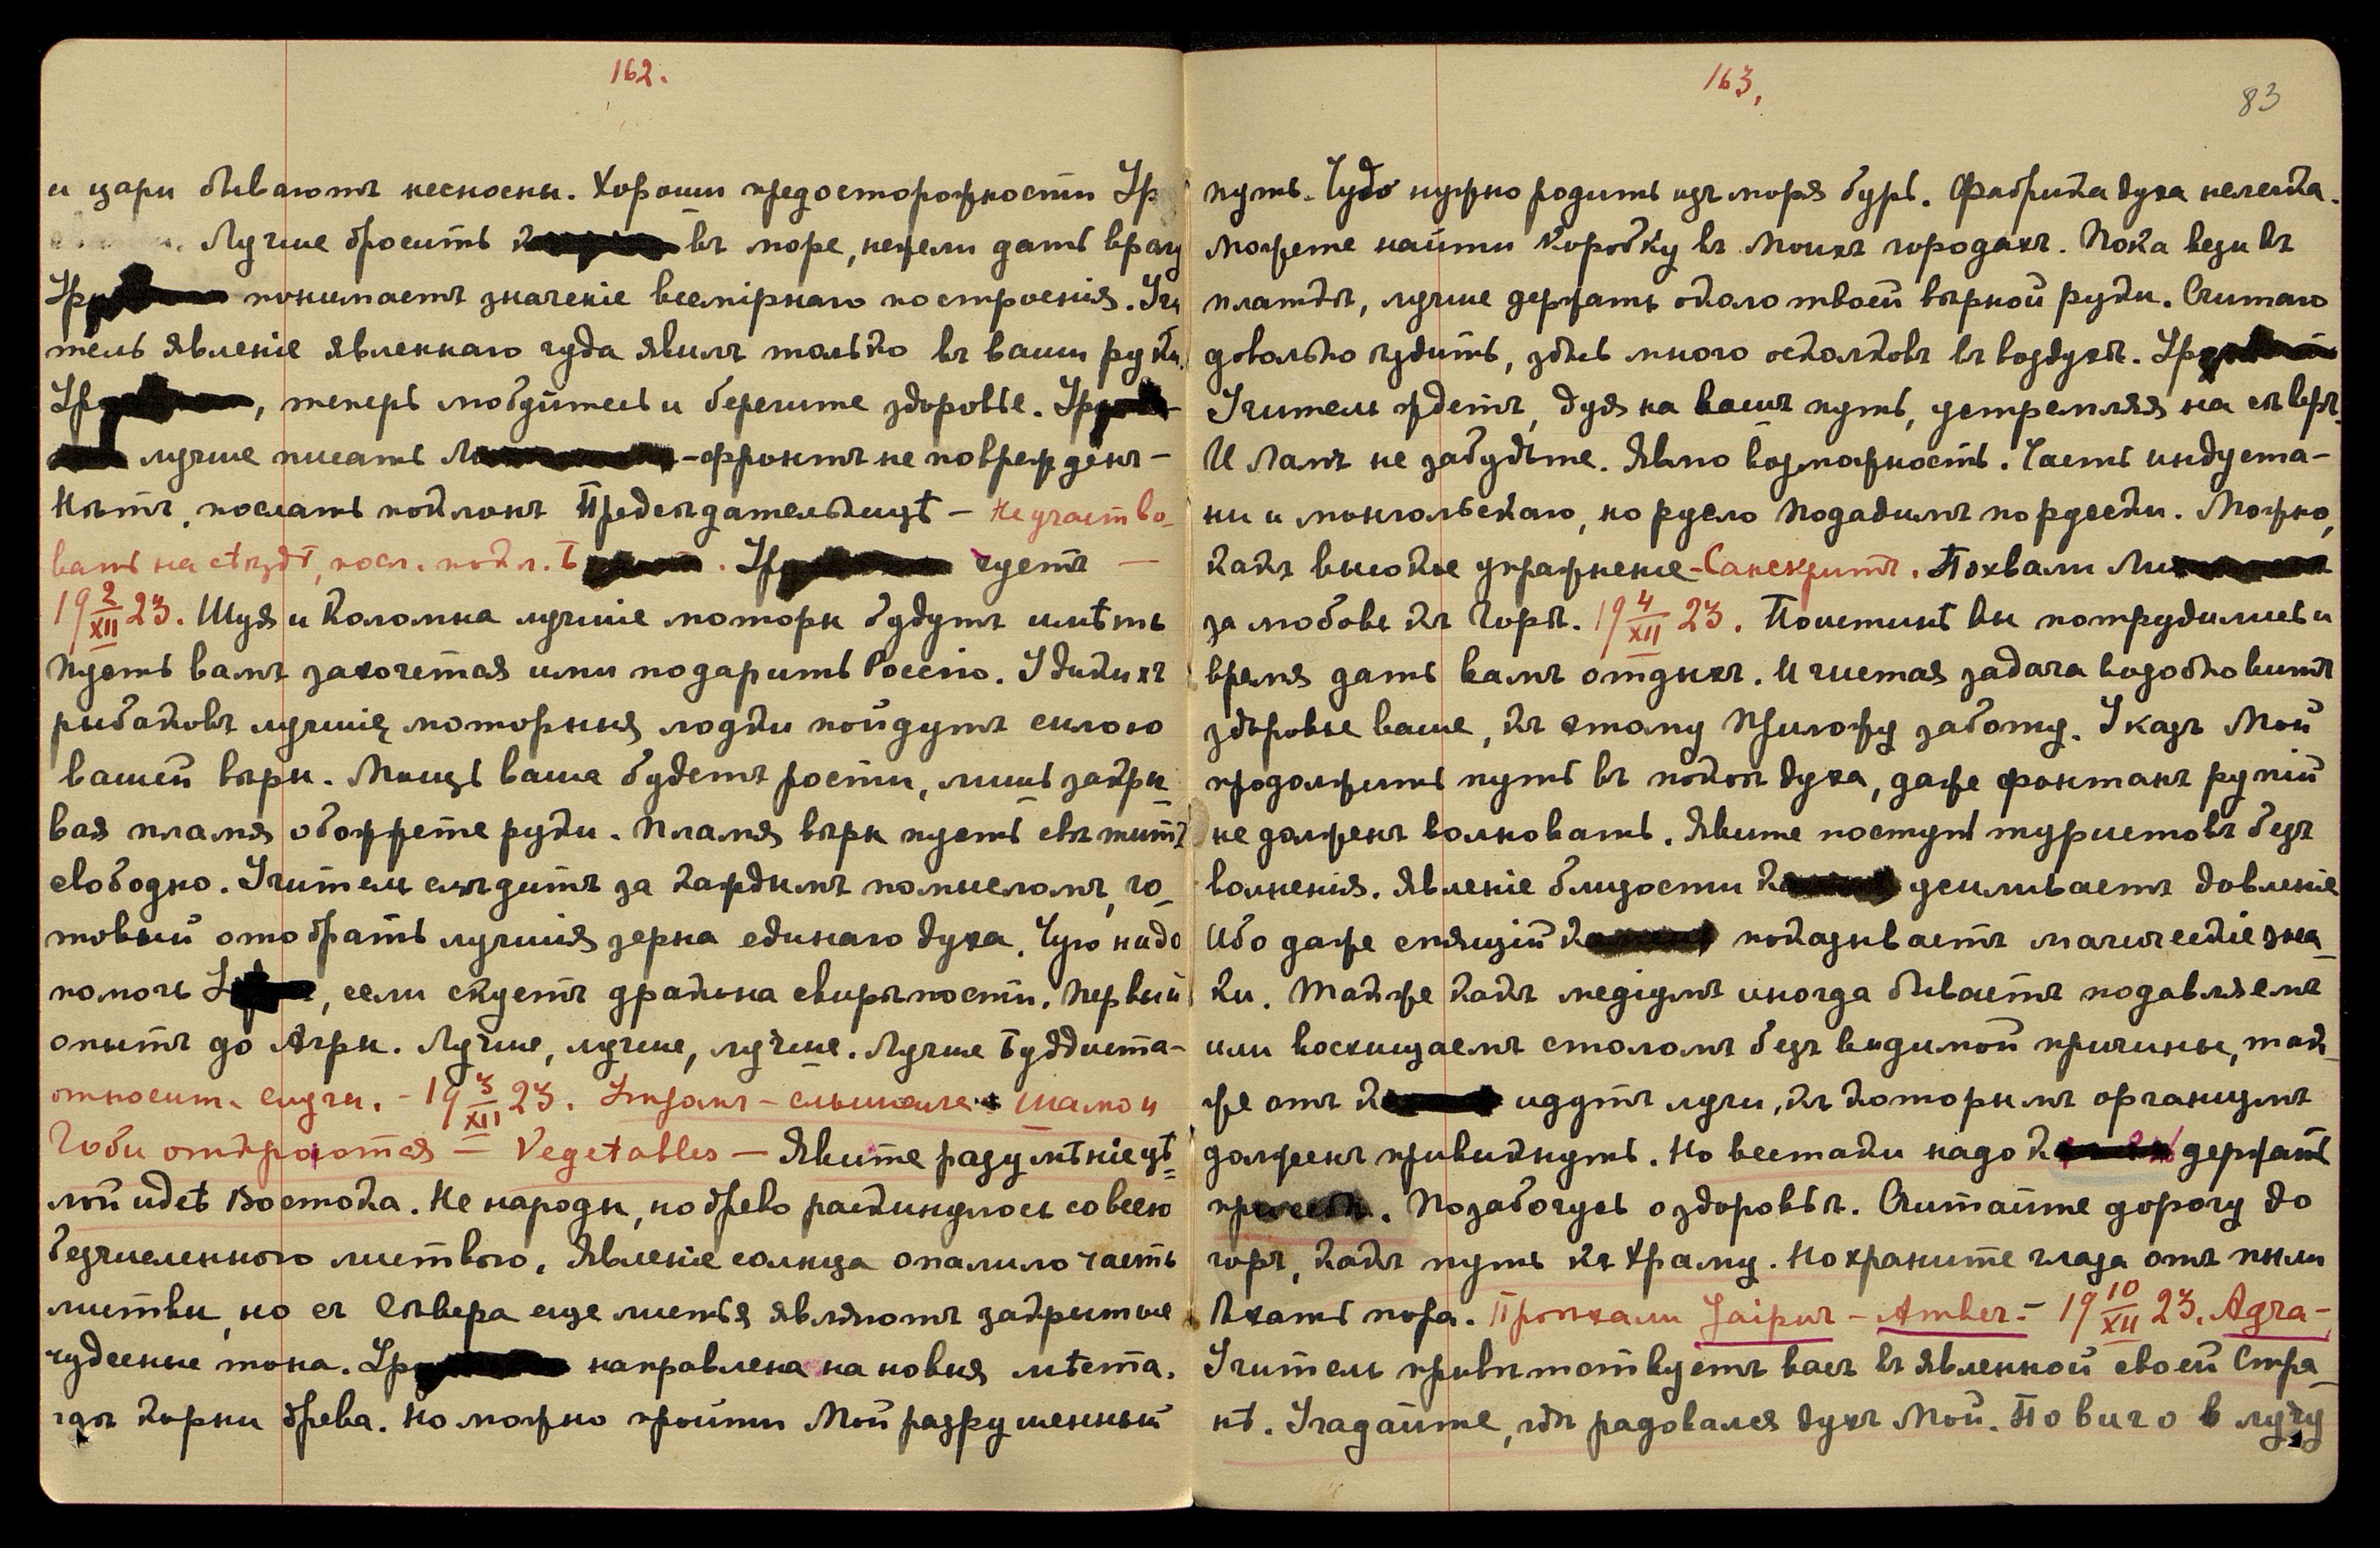 162.
и цари бываютъ несносны. Хороши предосторожности Ур
Лучше бросить въ море, нежели дать врагу
Ур понимаетъ значеніе всемірнаго построенія. Учи
тель явленіе явленнаго чуда явилъ только въ ваши руки.
Ур , теперь любуйтесь и берегите здоровье. Ур
лучше писать -фронтъ не поврежденъ-
Нѣтъ, послать поклонъ Предсѣдательницѣ - Не участво-
вать на съѣздѣ, посл. покл. Б . Ур чуетъ —
19 2/XII 23. Шуя и Коломна лучшіе моторы будутъ имѣть
Пусть вамъ захочется ими подарить Россію. У дикихъ
рыбаковъ лучшія моторныя лодки пойдутъ силою
вашей вѣры. Мощь ваша будетъ рости, лишь закры-
вая пламя обожжете руки. Пламя вѣры пусть свѣтитъ
свободно. Учитель слѣдитъ за каждымъ помысломъ, го-
товый отобрать лучшія зерна единаго духа. Чую надо
помочь У , если скуетъ дракона свирѣпости. Первый
опытъ до Агры. Лучше, лучше, лучше. Лучше Буддиста-
относит. сидхи. - 19 3/XII 23. - слышала Шамо и
Гоби откроются — Vegetables — Явите разумѣніе цѣ-
лой идеѣ Востока. Не народы, но древо раскинулось со всею
безчисленною листвою. Явленіе солнца опалило часть
листвы, но съ Сѣвера еще листья являютъ закрытые
чудесные тона. Ур направлена на новыя мѣста.
гдѣ корни древа. Но можно пройти Мой разрушенный
163.
83
путь. Чудо нужно родить изъ моря бурь. Фабрика духа нелегка.
Можете найти коробку въ Моихъ городахъ. Пока вези въ
платкѣ, лучше держать около твоей вѣрной руки. Считаю
довольно судить, здѣсь много осколковъ въ воздухѣ. Ур
Учитель ждетъ, дуя на вашъ путь, устремляя на сѣверъ.
И Ламъ не забудьте. Явлю возможность. Часть индуста-
ни и монгольскаго, но русло Подадимъ по русски. Можно,
какъ высокое упражненіе - Санскритъ. Похвали
за любовь къ Горѣ. 19 4/XII 23. Поистинѣ вы потрудились и
время дать вамъ отдыхъ. И чистая задача возобновитъ
здоровье ваше, къ этому Приложу заботу. Указъ Мой
продолжить путь въ покоѣ духа, даже фонтанъ рупій
не долженъ волновать. Явите поступь туристовъ безъ
волненія. Явленіе близости усиливаетъ давленіе
Ибо даже спящій показываетъ магическіе зна-
ки. Также какъ медіумъ иногда бываетъ подавляемъ
или восхищаемъ столомъ безъ видимой причины, так-
же отъ идутъ лучи, къ которымъ организмъ
долженъ привыкнуть. Но всетаки надо держать
Позабочусь о здоровьѣ. Считайте дорогу до
горъ, какъ путь къ Храму. Но храните глаза отъ пыли
Ѣхать пора. Проѣхали Jaipur - Amber - 19 10/XII 23. Agra -
Учитель привѣтствуетъ васъ въ явленной своей Стра-
нѣ. Угадайте, гдѣ радовался духъ Мой. По вичо в лучу